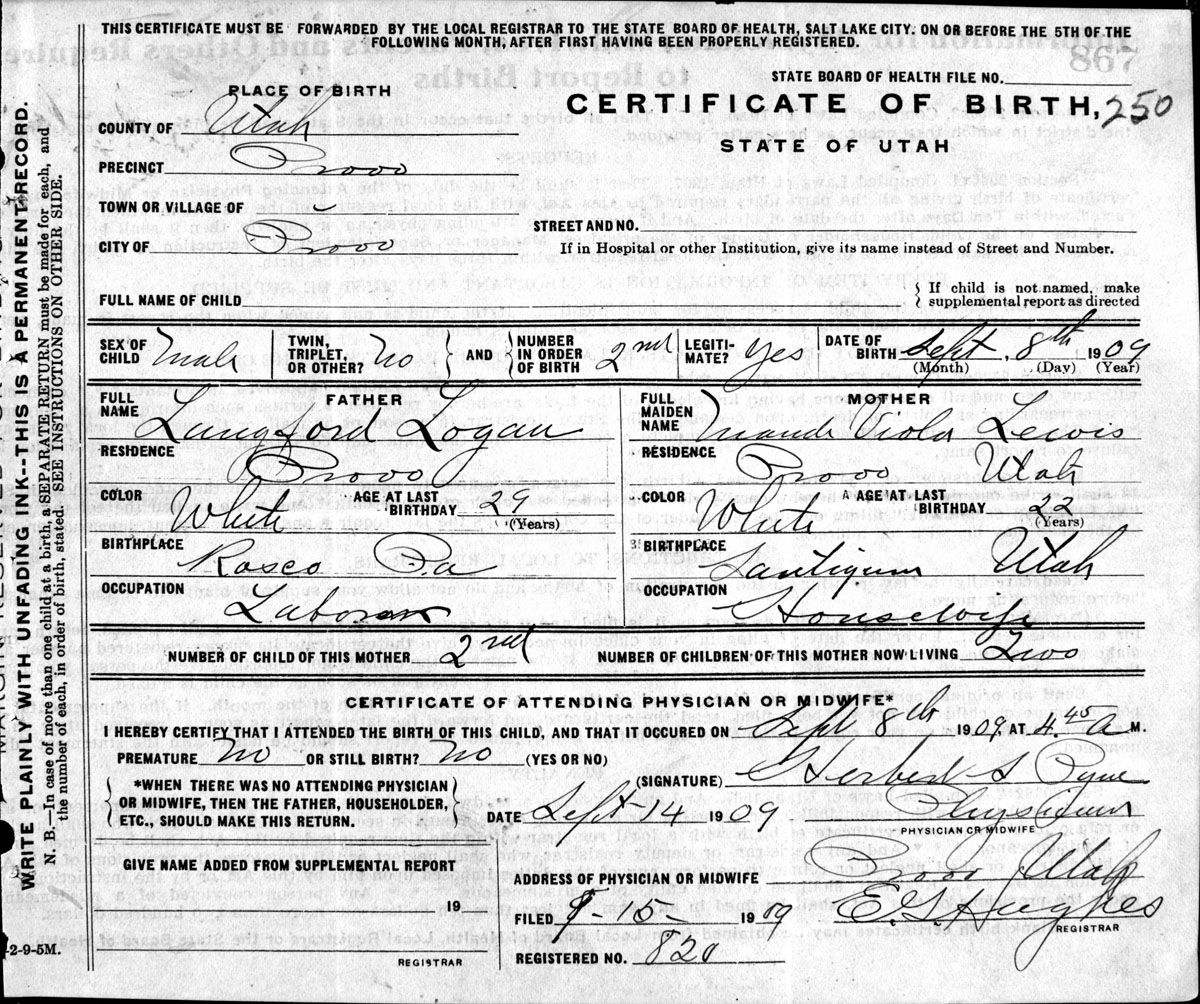 THIS CERTIFICATE MUST BE FORWARDED BY THE LOCAL REGISTRAR TO THE STATE BOARD OF HEALTH, SALT LAKE CITY. ON OR BEFORE THE 5TH OF THE
FOLLOWING MONTH, AFTER FIRST HAVING BEEN PROPERLY REGISTERED.
STATE BOARD OF HEALTH FILE NO.
PLACE OF BIRTH
CERTIFICATE OF BIRTH, 250
STATE OF UTAH
COUNTY OF Utah
PRECINCT Provo
TOWN OR VILLAGE OF
STREET AND NO.
CITY OF Provo
If in Hospital or other Institution, give its name instead of Street and Number.
FULL NAME OF CHILD
{ If child is not named, make
supplemental report as directed
SEX OF CHILD Male TWIN, TRIPLET, OR OTHER? No AND NUMBER IN ORDER OF BIRTH 2nd LEGITI-MATE? Yes DATE OF BIRTH Sept. 8th 1909
(Month) (Day) (Year)
FATHER
FULL NAME Langford Logan
RESIDENCE Provo
COLOR White AGE AT LAST BIRTHDAY 29 (Years)
BIRTHPLACE Rosco Pa
OCCUPATION Laborer
MOTHER
FULL MAIDEN NAME Maude Viola Lewis
RESIDENCE Provo Utah
COLOR White AGE AT LAST BIRTHDAY 22 (Years)
BIRTHPLACE Santiqum Utah
OCCUPATION Housewife
NUMBER OF CHILD OF THIS MOTHER 2nd NUMBER OF CHILDREN OF THIS MOTHER NOW LIVING Two
CERTIFICATE OF ATTENDING PHYSICIAN OR MIDWIFE*
I HEREBY CERTIFY THAT I ATTENDED THE BIRTH OF THIS CHILD, AND THAT IT OCCURED ON Sept 8th 1909. AT 4.45 a M.
PREMATURE No OR STILL BIRTH? No (YES OR NO)
(SIGNATURE) Herbert S Pyne
*WHEN THERE WAS NO ATTENDING PHYSICIAN
OR MIDWIFE, THEN THE FATHER, HOUSEHOLDER,
ETC., SHOULD MAKE THIS RETURN.
DATE Sept-14 1909 Physician
PHYSICIAN OR MIDWIFE
GIVE NAME ADDED FROM SUPPLEMENTAL REPORT
ADDRESS OF PHYSICIAN OR MIDWIFE Provo Utah
19
FILED 9-15- 1909 E.G. Hughes
REGISTRAR
REGISTRAR
REGISTERED NO. 820
WRITE PLAINLY WITH UNFADING INK--THIS IS A PERMANENT RECORD.
N. B.—In case of more than one child at a birth, a SEPARATE RETURN must be made for each, and
the number of each, in order of birth, stated. SEE INSTRUCTIONS ON OTHER SIDE.
-2-9-5M.